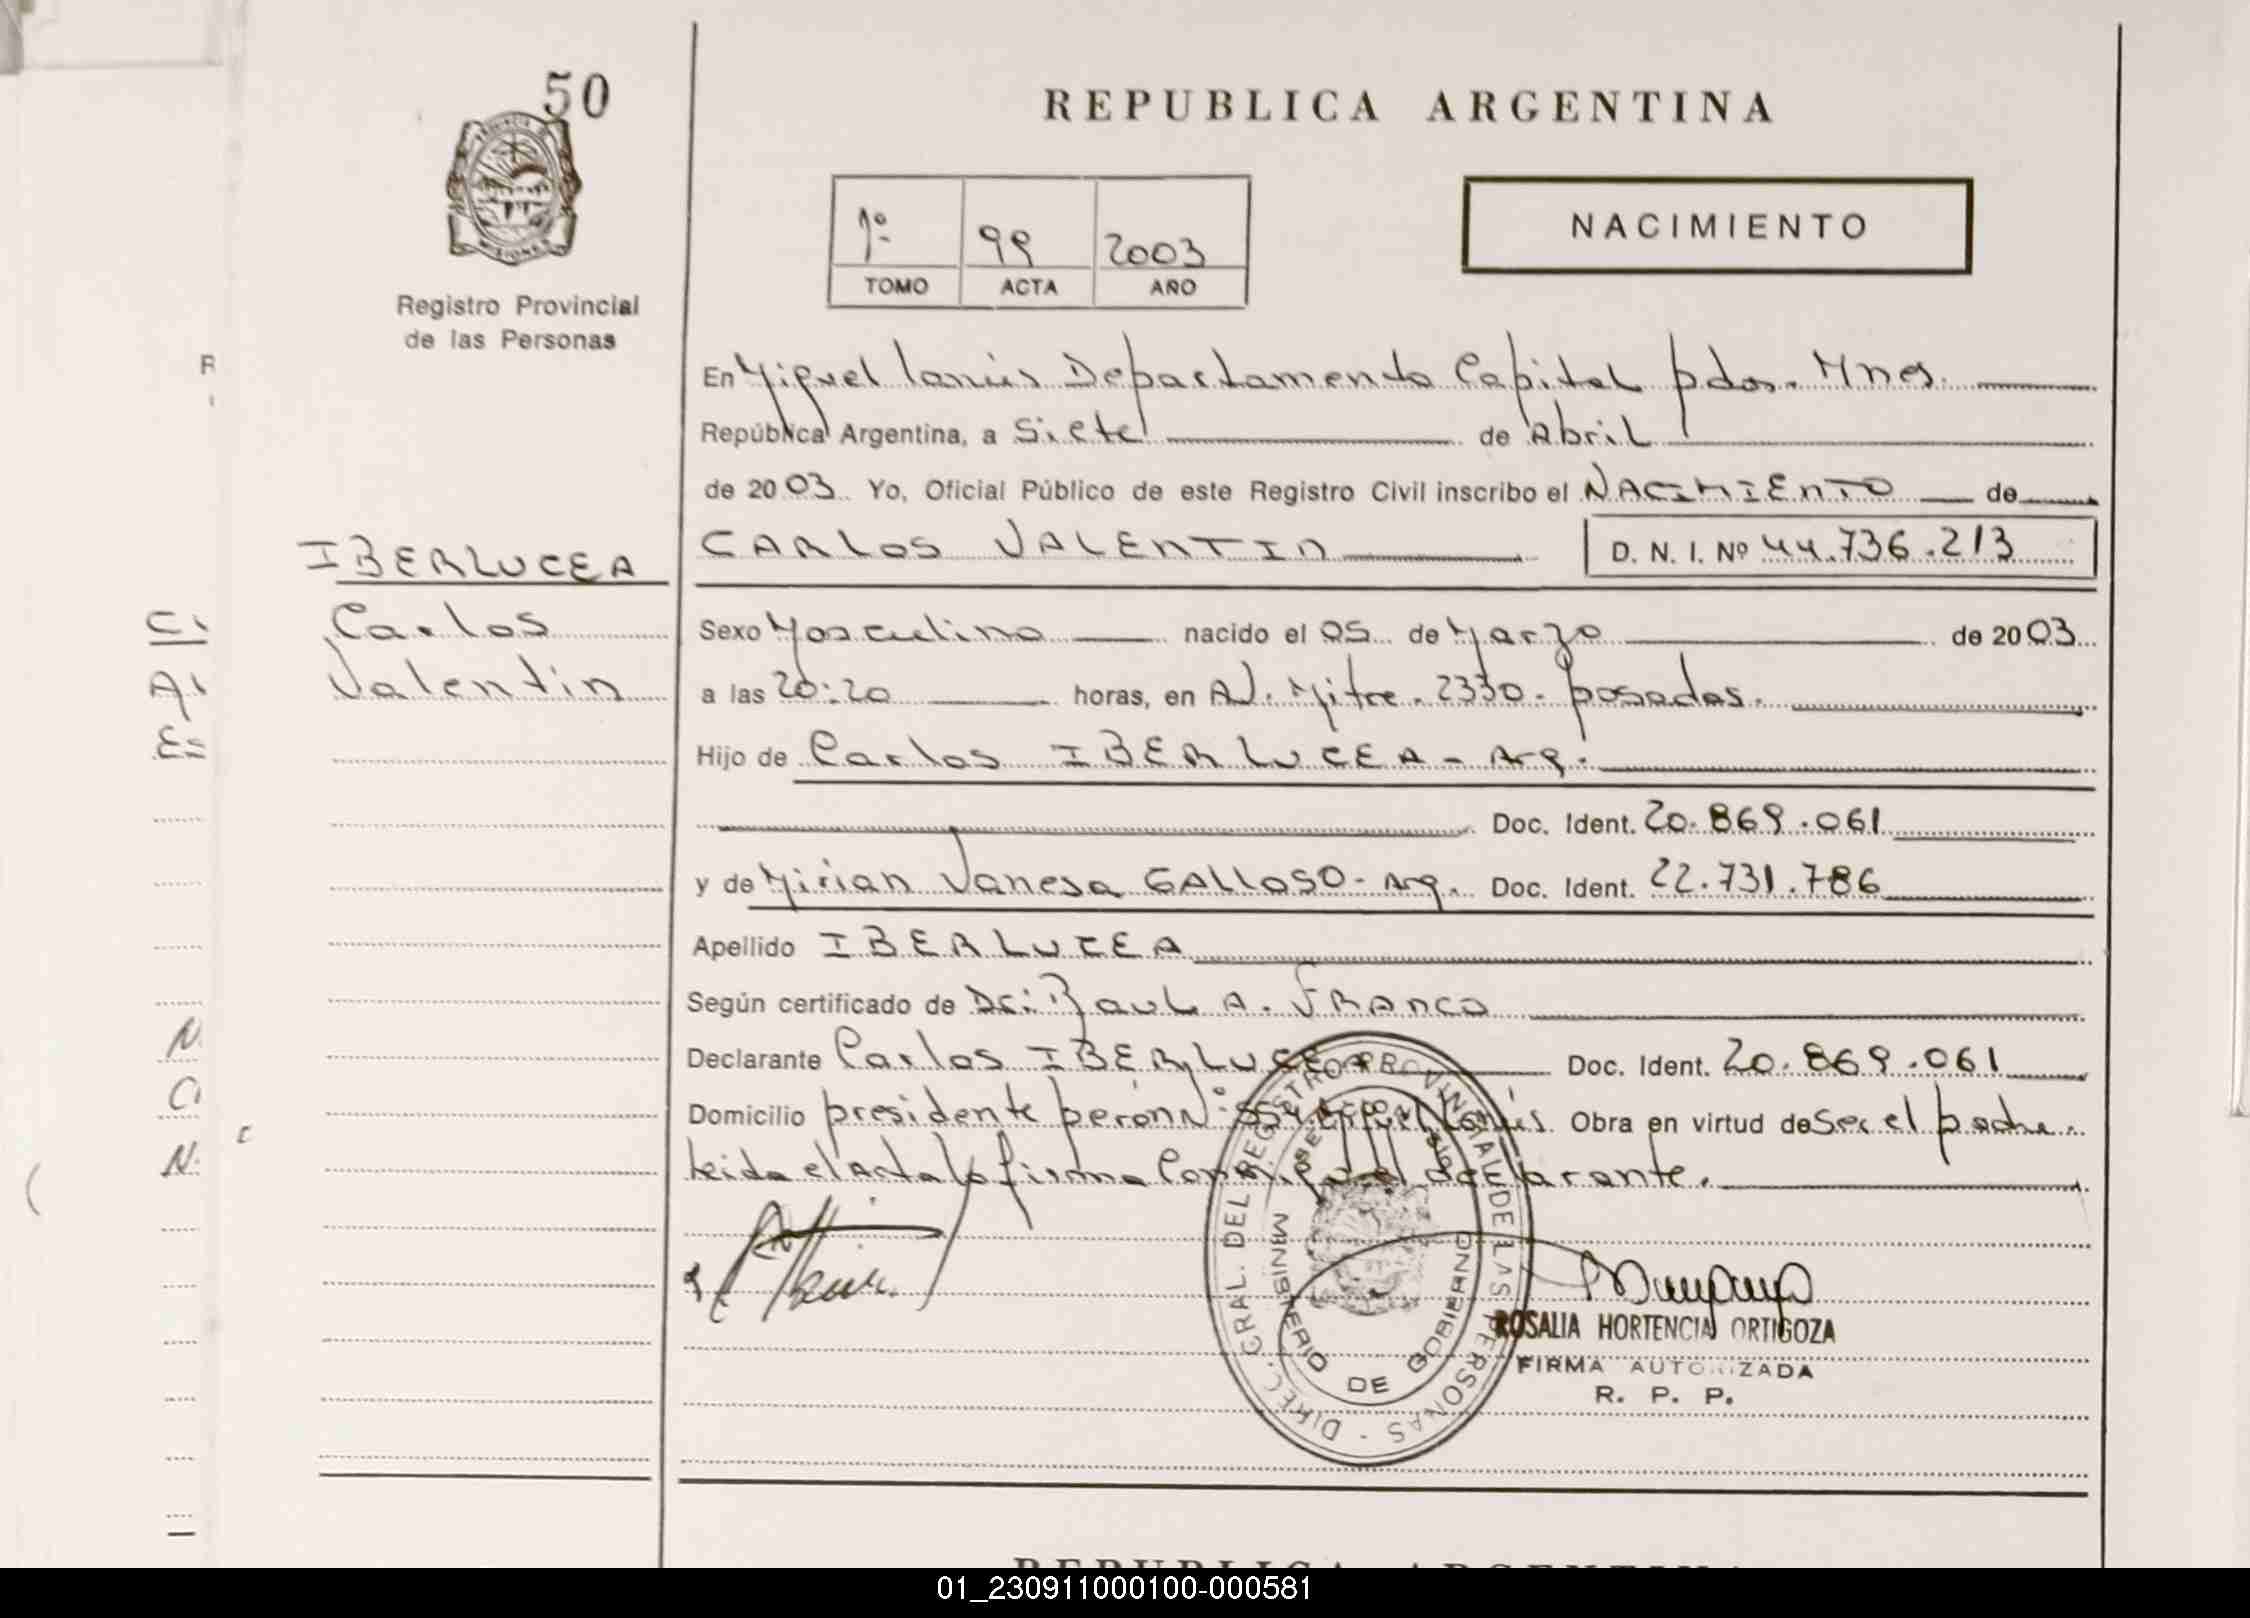 50
Registro Provincial
de las Personas
IBERLUCEA
Carlos
Valentin
REPUBLICA ARGENTINA
1º 99 2003
TOMO ACTA AÑO
NACIMIENTO
En Miguel lanús Departamento Capital pdas. Mnes.
República Argentina, a Siete de Abril
de 2003 Yo, Oficial Público de este Registro Civil inscribo el NACIMIENTO de
CARLOS VALENTIN D. N. I. Nº 44.736.213
Sexo Masculino nacido el 05 de Marzo de 2003
a las 20:20 horas, en AV. Mitre. 2330. posadas.
Hijo de Carlos IBERLUCEA - Arg.
Doc. Ident. 20.869.061
y de Mirian Vanesa GALLOSO - Arg. Doc. Ident. 22.731.786
Apellido IBERLUCEA
Según certificado de Dr: Raul A. FRANCO
Declarante Carlos IBERLUCEA Doc. Ident. 20.869.061
Domicilio presidente perón Nº 554 Miguel lanús. Obra en virtud de Ser el padre.
leida el Acta la firma Conmigo el declarante.
DIREC. GRAL. DEL REGISTRO PROVINCIAL DE LAS PERSONAS -
MINISTERIO DE GOBIERNO
ROSALIA HORTENCIA ORTIGOZA
FIRMA AUTORIZADA
R. P. P.
REPUBLICA ARGENTINA
01_230911000100-000581